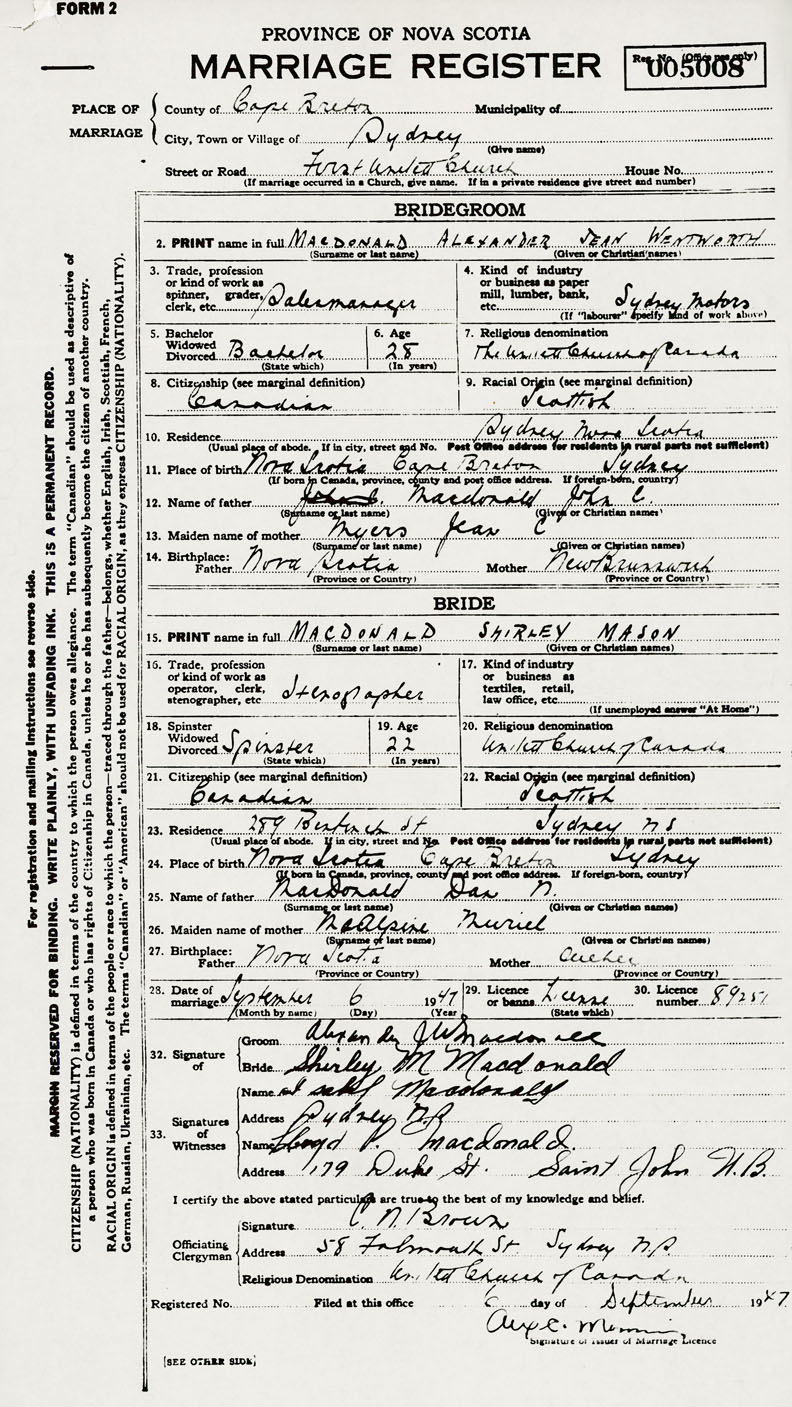 FORM 2
PROVINCE OF NOVA SCOTIA
MARRIAGE REGISTER
Reg. No. (Office use only)
005008
PLACE OF MARRIAGE
County of Cape Breton Municipality of
City, Town or Village of Sydney
(Give name)
Street or Road First United Church House No.
(If marriage occurred in a Church, give name. If in a private residence give street and number)
BRIDEGROOM
2. PRINT name in full MACDONALD ALEXANDER JEAN WENTWORTH
(Surname or last name) (Given or Christian names)
3. Trade, profession or kind of work as spinner, grader, clerk, etc. Salesmanager
4. Kind of industry or business as paper mill, lumber, bank, etc. Sydney Motors
(If "labourer" specify kind of work above)
5. Bachelor Widowed Divorced Bachelor
(State which)
6. Age 28
(In years)
7. Religious denomination
The United Church of Canada
8. Citizenship (see marginal definition)
Canadian
9. Racial Origin (see marginal definition)
Scottish
10. Residence Sydney Nova Scotia
(Usual place of abode. If in city, street and No. Post Office address for residents in rural parts not sufficient)
11. Place of birth Nova Scotia Cape Breton Sydney
(If born in Canada, province, county and post office address. If foreign-born, country)
12. Name of father John C. Macdonald John C.
(Surname or last name) (Given or Christian names)
13. Maiden name of mother Myers Jean C
(Surname or last name) (Given or Christian names)
14. Birthplace: Father Nova Scotia Mother New Brunswick
(Province or Country) (Province or Country)
BRIDE
15. PRINT name in full MACDONALD SHIRLEY MASON
(Surname or last name) (Given or Christian names)
16. Trade, profession or kind of work as operator, clerk, stenographer, etc. Stenographer
17. Kind of industry or business as textiles, retail, law office, etc.
(If unemployed answer "At Home")
18. Spinster Widowed Divorced Spinster
(State which)
19. Age 22
(In years)
20. Religious denomination
United Church of Canada
21. Citizenship (see marginal definition)
Canadian
22. Racial Origin (see marginal definition)
Scottish
23. Residence 289 St Sydney NS
(Usual place of abode. If in city, street and No. Post Office address for residents in rural parts not sufficient)
24. Place of birth Nova Scotia Cape Breton Sydney
(If born in Canada, province, county and post office address. If foreign-born, country)
25. Name of father MacDonald Dan N.
(Surname or last name) (Given or Christian names)
26. Maiden name of mother McAlpine Muriel
(Surname or last name) (Given or Christian names)
27. Birthplace: Father Nova Scotia Mother Quebec
(Province or Country) (Province or Country)
28. Date of marriage September 6 1947
(Month by name) (Day) (Year)
29. Licence or banns License
(State which)
30. Licence number 89251
32. Signature of
Groom Alexander J W Macdonald
Bride Shirley M Macdonald
33. Signatures of Witnesses
Name Isabel Macdonald
Address Sydney N.S.
Name Lloyd Macdonald.
Address 179 Duke St. Saint John N.B.
I certify the above stated particulars are true to the best of my knowledge and belief.
Officiating Clergyman
Signature C. N. Brown
Address 58 Falmouth St Sydney N.S.
Religious Denomination United Church of Canada
Registered No. Filed at this office 6 day of September 1947
Signature of Issuer of Marriage Licence
[SEE OTHER SIDE]
For registration and mailing instructions see reverse side.
MARGIN RESERVED FOR BINDING. WRITE PLAINLY, WITH UNFADING INK. THIS IS A PERMANENT RECORD.
CITIZENSHIP (NATIONALITY) is defined in terms of the country to which the person owes allegiance. The term "Canadian" should be used as descriptive of
a person who was born in Canada or who has rights of Citizenship in Canada, unless he or she has subsequently become the citizen of another country.
RACIAL ORIGIN is defined in terms of the people or race to which the person—traced through the father—belongs, whether English, Irish, Scottish, French,
German, Russian, Ukrainian, etc. The terms "Canadian" or "American" should not be used for RACIAL ORIGIN, as they express CITIZENSHIP (NATIONALITY).